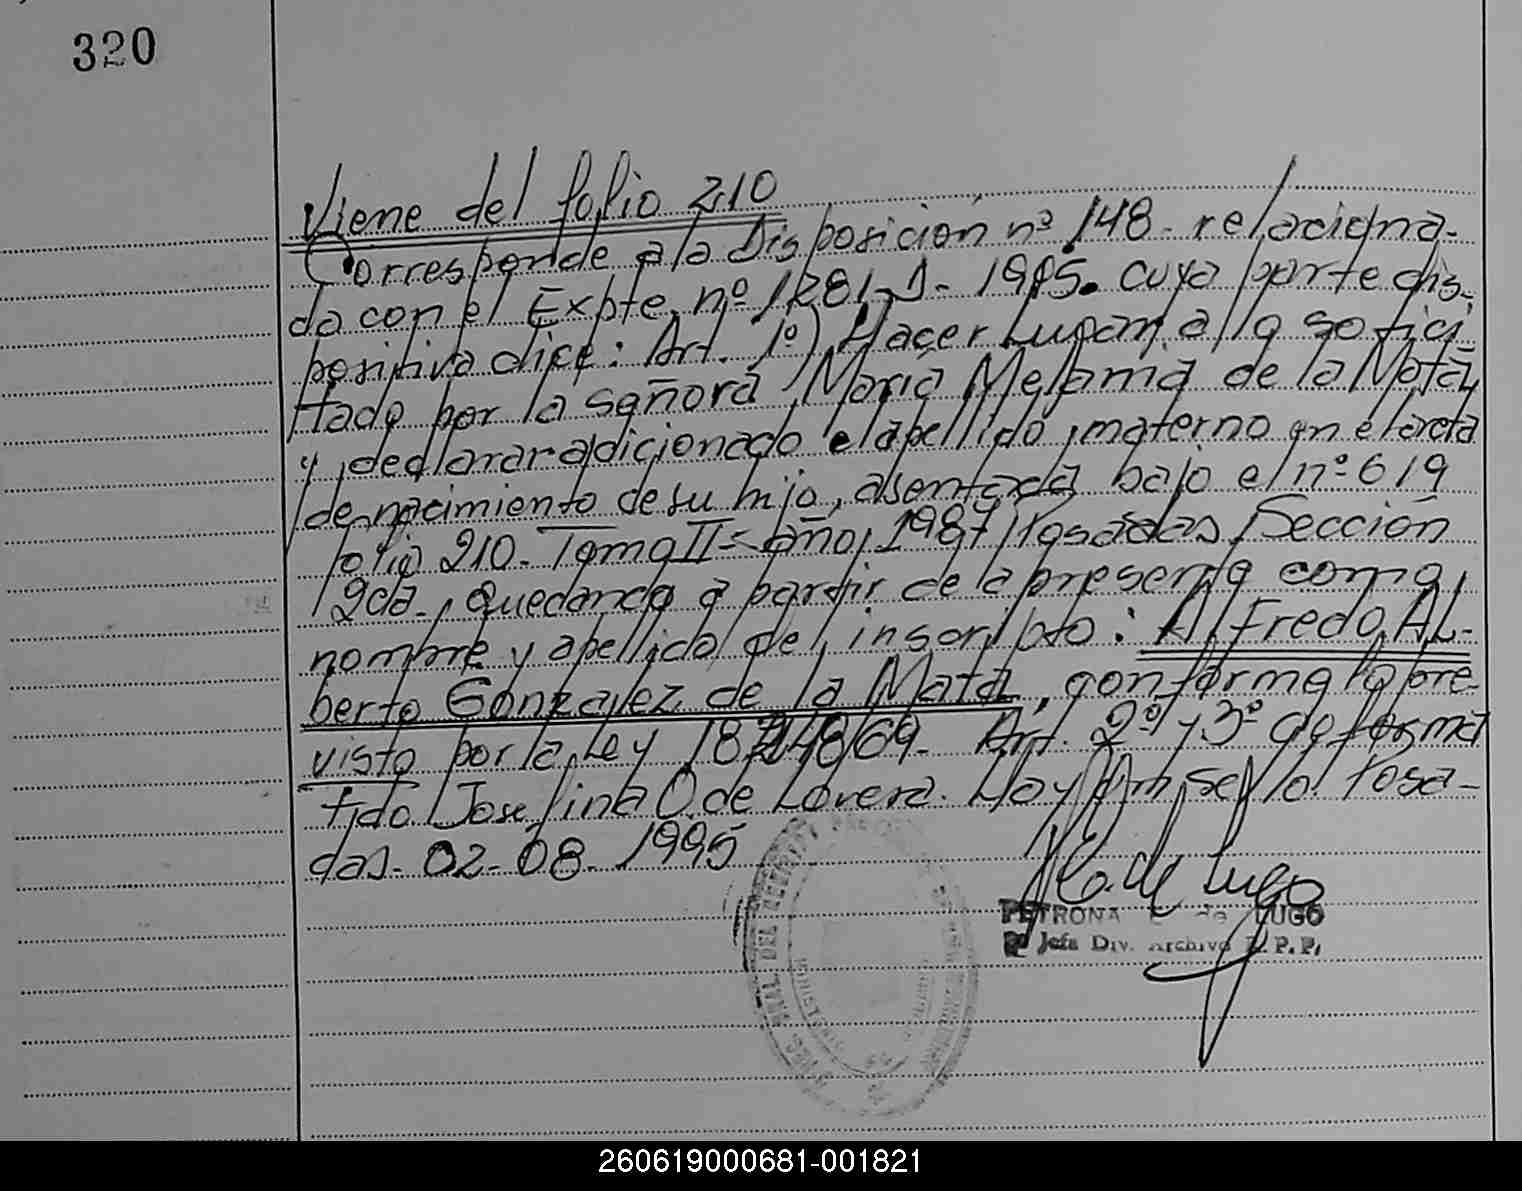 320
Viene del folio 210
Corresponde a la Disposición nº 148- relaciona-
da con el Expte. nº 1281-D- 1995. cuya parte dis-
positiva dice: Art. 1º) Hacer Lugar a lo solici
tado por la señora María Melania de la Mata
y declarar adicionado el apellido materno en el acta
de nacimiento de su hijo, asentada bajo el nº 619
folio 210- Tomo II- año 1987 Posadas Sección
2da-, quedando a partir de la presente como
nombre y apellido del inscripto: Alfredo AL-
berto Gonzalez de la Mata, conforme lo pre-
visto por la Ley 18248/69- Art. 2º y 3º de forma
fdo Josefina O. de Lovera. Hay un sello Posa-
das- 02-08- 1995
PETRONA de LUGO
Jefa Div. Archivo R. P. P.
260619000681-001821